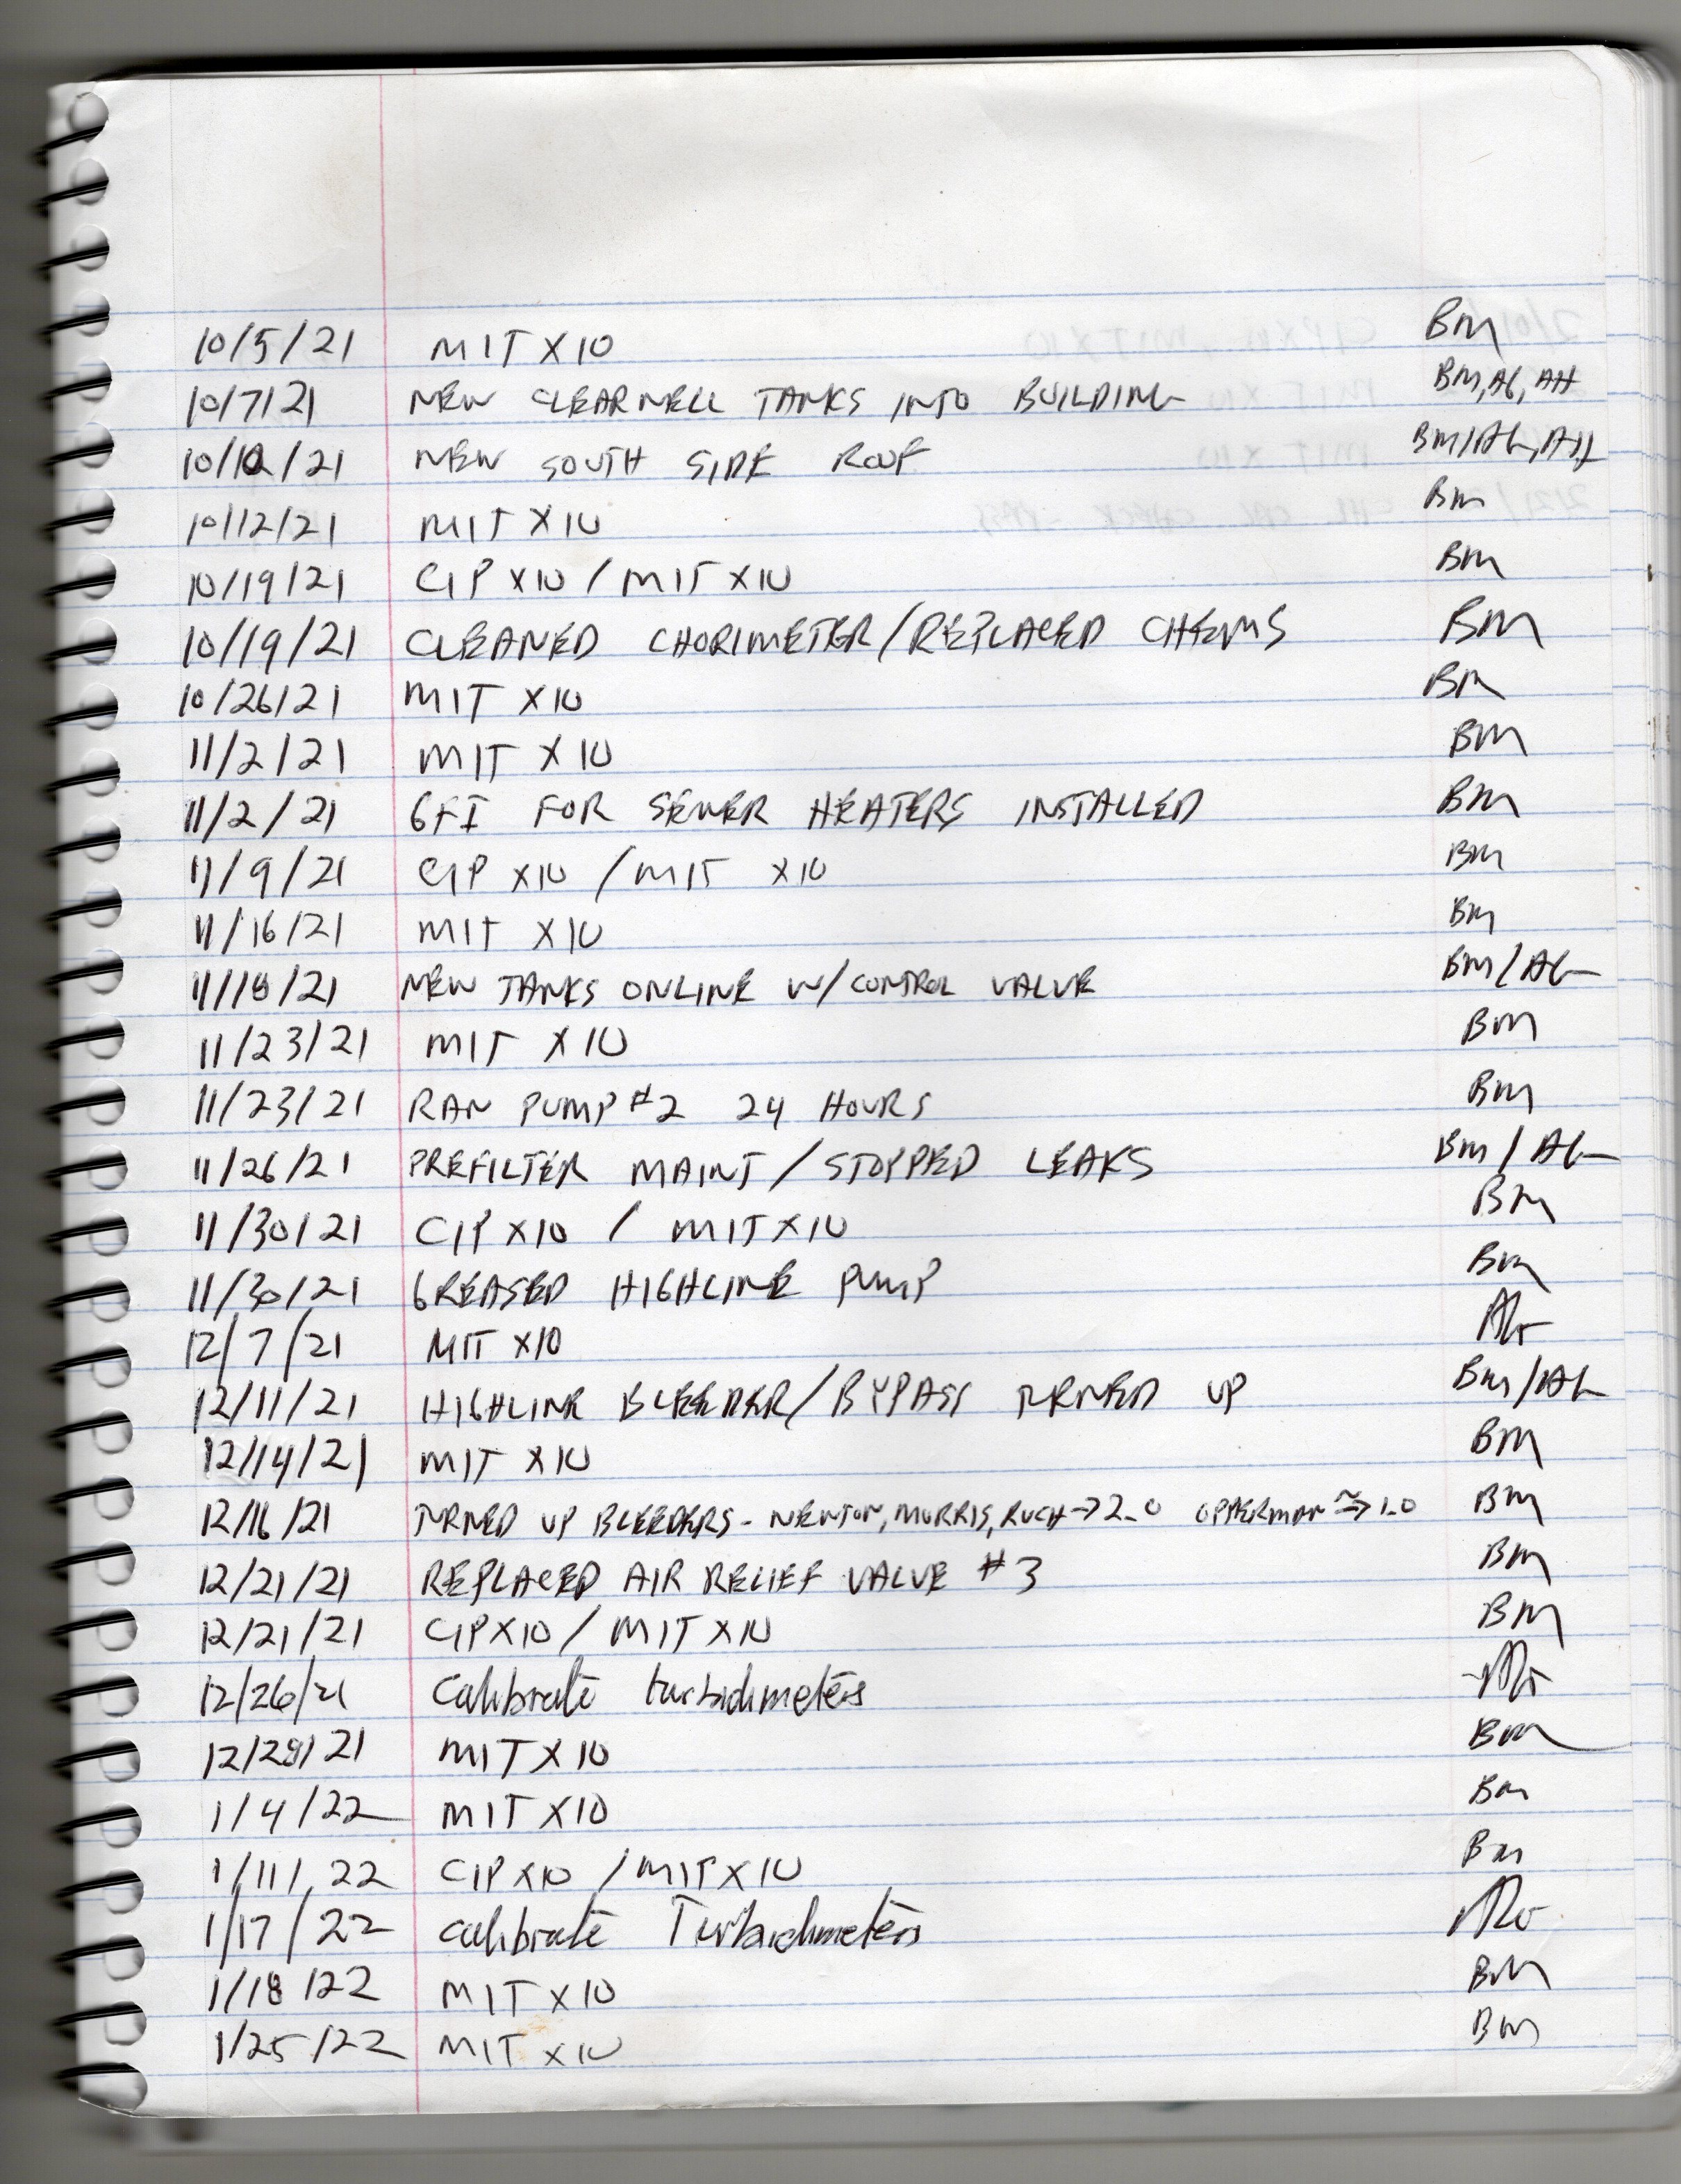 10/5/21 MIT X 10 BM
10/7/21 NEW CLEARWELL TANKS INTO BUILDING BM, AG, AH
10/12/21 NEW SOUTH SIDE ROOF BM/AG, AH
10/12/21 MIT X 10 BM
10/19/21 CIP X10 / MIT X10 BM
10/19/21 CLEANED CHORIMETER/REPLACED CHEMS BM
10/26/21 MIT X10 BM
11/2/21 MIT X 10 BM
11/2/21 GFI FOR SEWER HEATERS INSTALLED BM
11/9/21 CIP X10 / MIT X10 BM
11/16/21 MIT X10 BM
11/18/21 NEW TANKS ONLINE W/ CONTROL VALVE BM/AG
11/23/21 MIT X 10 BM
11/23/21 RAN PUMP #2 24 HOURS BM
11/26/21 PREFILTER MAINT / STOPPED LEAKS BM / AG
11/30/21 CIP X10 / MIT X10 BM
11/30/21 GREASED HIGHLINE PUMP BM
12/7/21 MIT X10 AG
12/11/21 HIGHLINE BLEEDER/BYPASS TURNED UP BM/AG
12/14/21 MIT X10 BM
12/16/21 TURNED UP BLEEDERS - NEWTON, MORRIS, RUCH → 2.0 OPPERMAN → 1.0 BM
12/21/21 REPLACED AIR RELIEF VALVE #3 BM
12/21/21 CIP X10 / MIT X10 BM
12/26/21 Calibrate turbidimeters
12/28/21 MIT X 10 BM
1/4/22 MIT X10 BM
1/11/22 CIP X10 / MIT X 10 BM
1/17/22 Calibrate Turbidimeters
1/18/22 MIT X10 BM
1/25/22 MIT X 10 BM